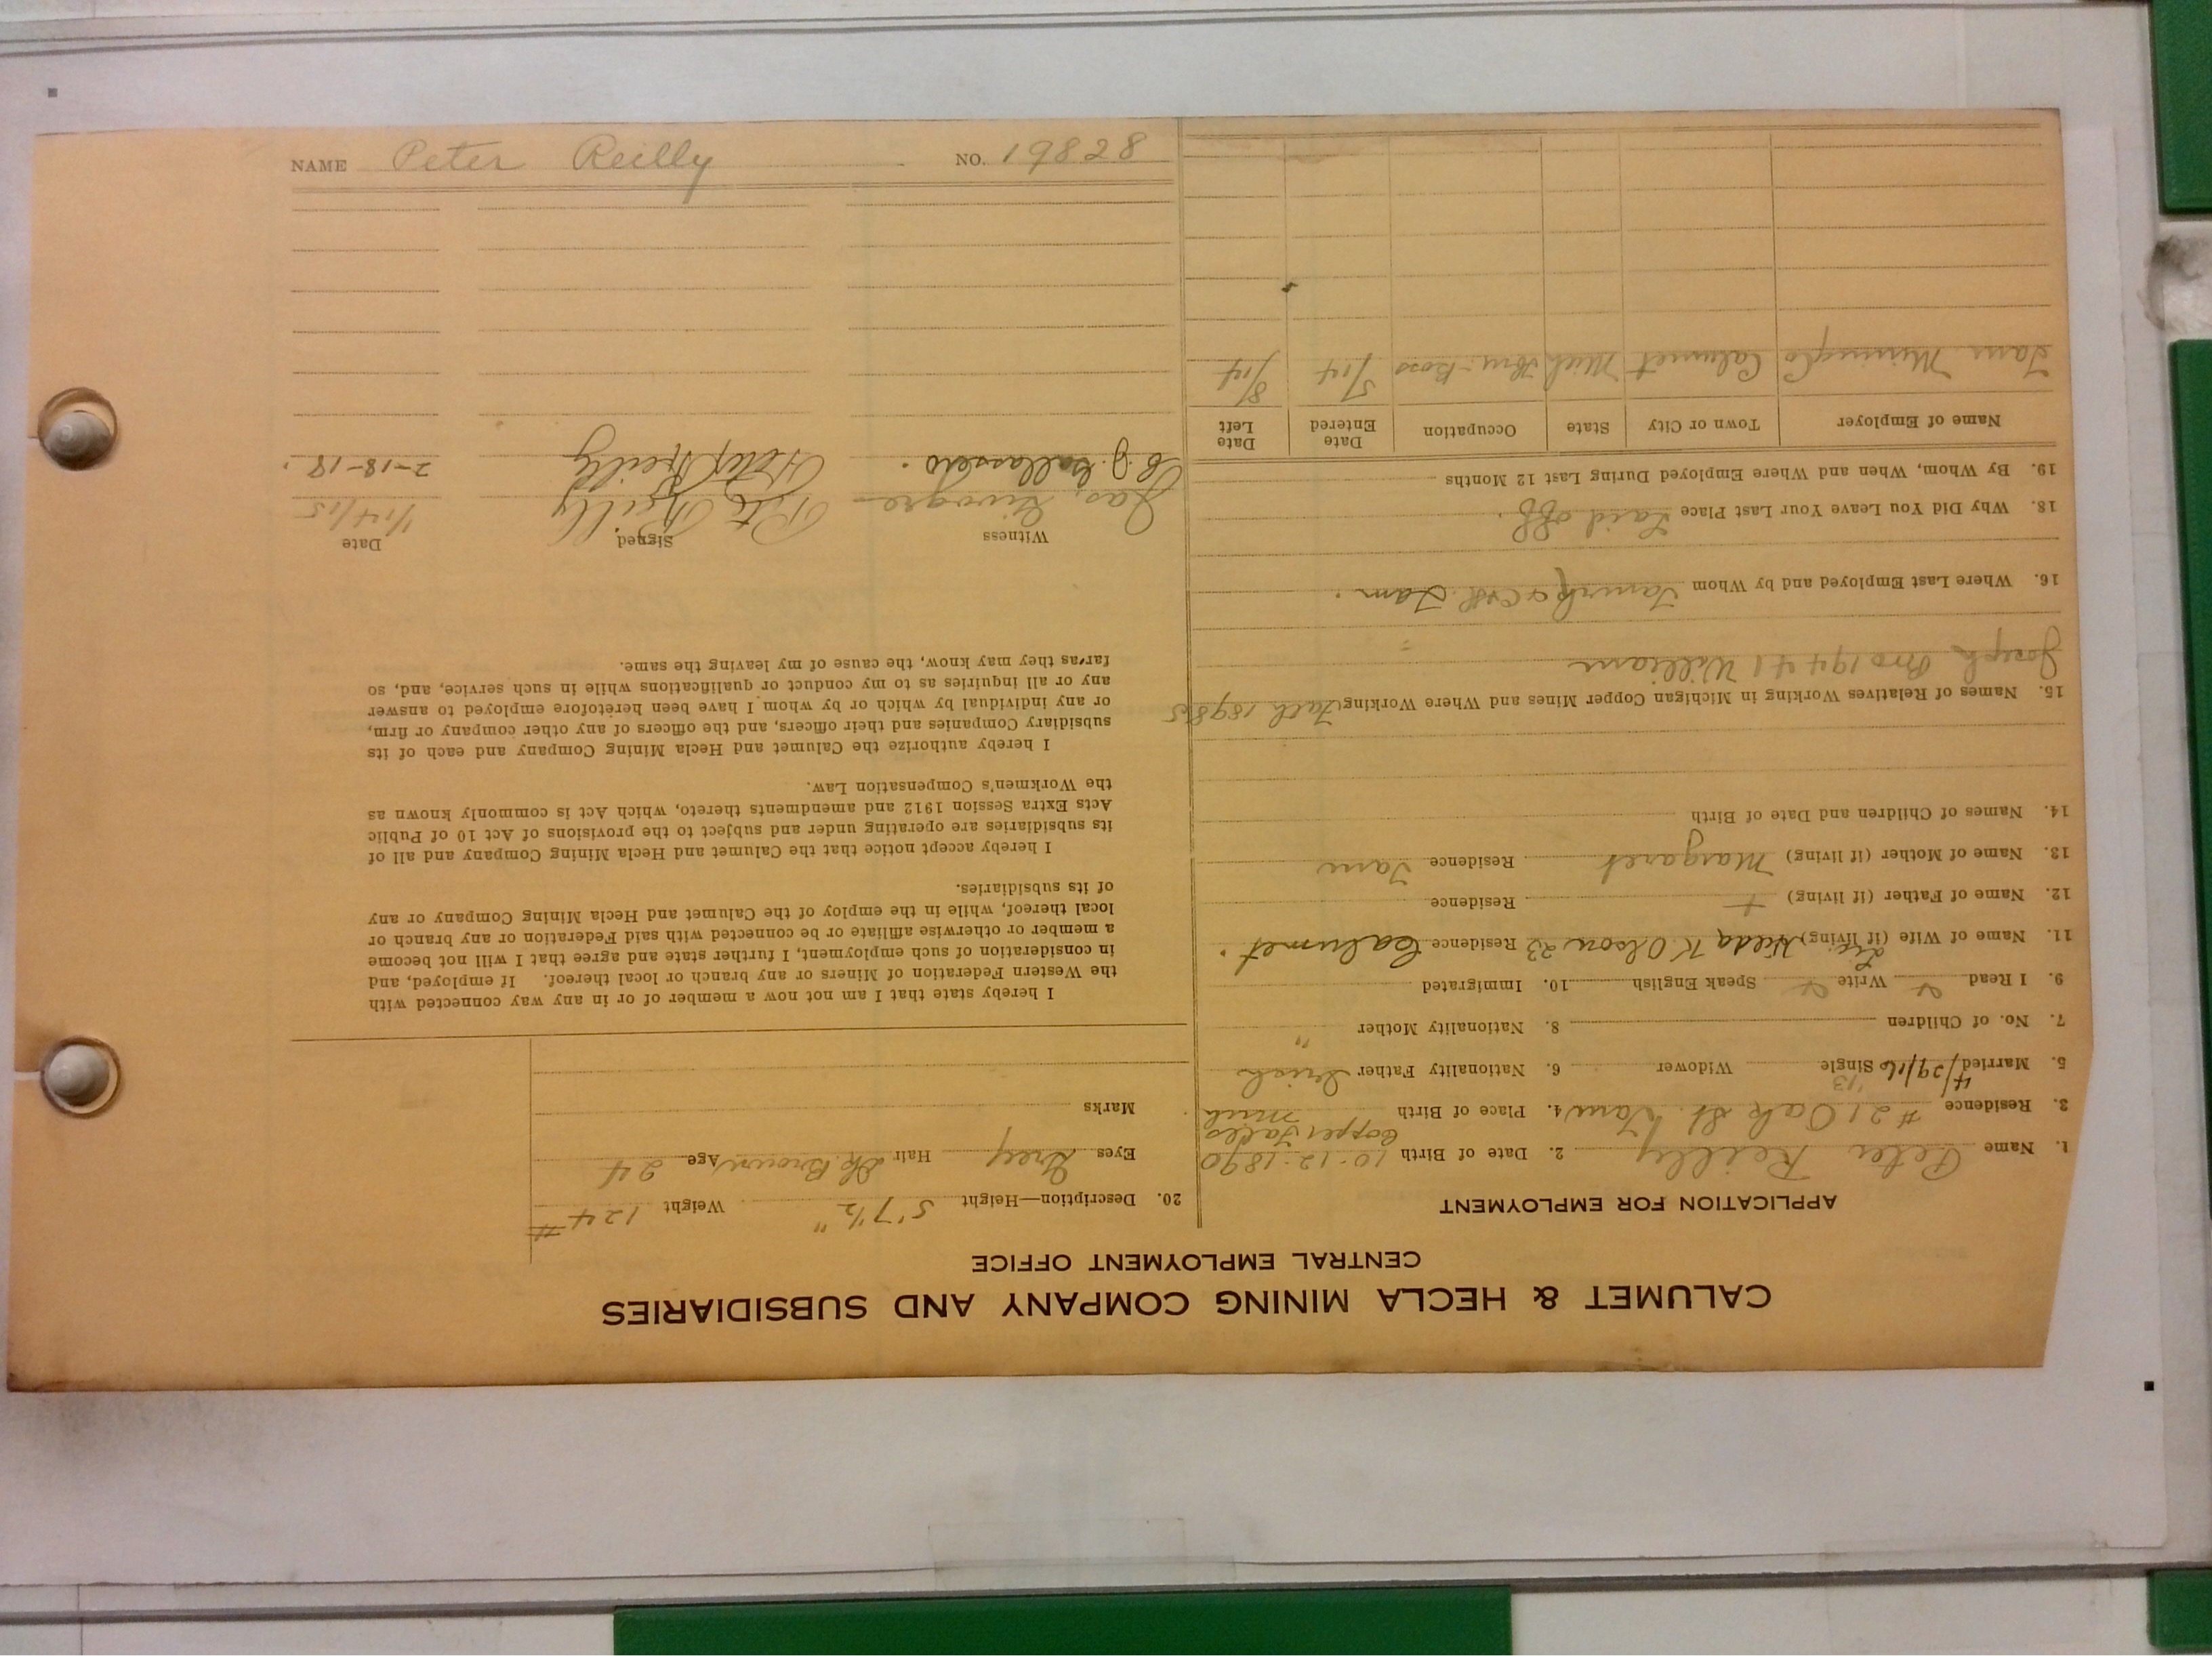 CALUMET & HECLA MINING COMPANY AND SUBSIDIARIES
CENTRAL EMPLOYMENT OFFICE
APPLICATION FOR EMPLOYMENT
1. Name Peter Reilly 2. Date of Birth 10-12-1890
3. Residence #21 Oak St. Tam 4. Place of Birth Copper Falls Mich
'13
5. Married 4/29/16 Single Widower 6. Nationality Father Irish
7. No. of Children 8. Nationality Mother "
9. I Read Write Speak English 10. Immigrated
11. Name of Wife (if living) Hilda K Olson 23 Residence Calumet.
12. Name of Father (if living) + Residence
13. Name of Mother (if living) Margaret Residence Tam
14. Names of Children and Date of Birth
15. Names of Relatives Working in Michigan Copper Mines and Where Working
Joseph Bro 19441 William
16. Where Last Employed and by Whom Tamrk & C&H Tam.
18. Why Did You Leave Your Last Place Laid off.
19. By Whom, When and Where Employed During Last 12 Months
Name of Employer Town or City State Occupation Date Entered Date Left
Tam Mining Co Calumet Mich Boss 5/14 8/14
20. Description—Height 5'7½" Weight 124#
Eyes Grey Hair Dk Brown Age 24
Marks
I hereby state that I am not now a member of or in any way connected with
the Western Federation of Miners or any branch or local thereof. If employed, and
in consideration of such employment, I further state and agree that I will not become
a member or otherwise affiliate or be connected with said Federation or any branch or
local thereof, while in the employ of the Calumet and Hecla Mining Company or any
of its subsidiaries.
I hereby accept notice that the Calumet and Hecla Mining Company and all of
its subsidiaries are operating under and subject to the provisions of Act 10 of Public
Acts Extra Session 1912 and amendments thereto, which Act is commonly known as
the Workmen's Compensation Law.
I hereby authorize the Calumet and Hecla Mining Company and each of its
subsidiary Companies and their officers, and the officers of any other company or firm,
or any individual by which or by whom I have been heretofore employed to answer
any or all inquiries as to my conduct or qualifications while in such service, and, so
far as they may know, the cause of my leaving the same.
Witness Signed Date
Jas. Pete Reilly 1/14/15
Peter Reilly 2-18-18.
NAME Peter Reilly NO. 19828